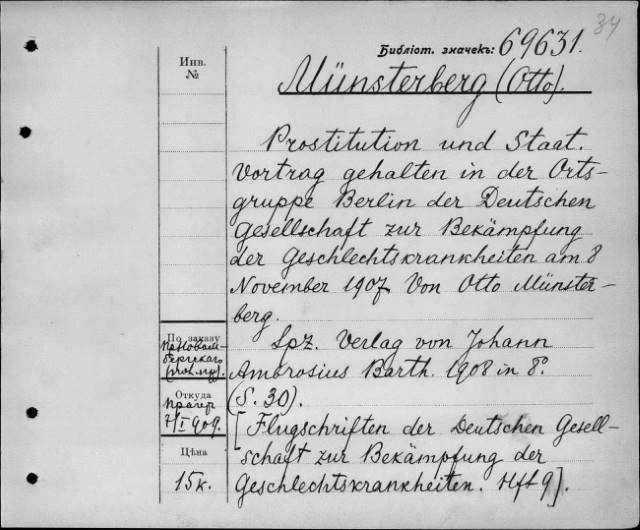 34
Библіот. значекъ: 69631.
Инв.
№
Münsterberg (Otto).
Prostitution und Staat.
Vortrag gehalten in der Orts-
gruppe Berlin der Deutschen
Gesellschaft zur Bekämpfung
der Geschlechtskrankheiten am 8
November 1907. Von Otto Münster-
berg.
По заказу
Lpz. Verlag von Johann
Ambrosius Barth. 1908 in 8°.
(S. 30).
Откуда
7/I 909.
[Flugschriften der Deutschen Gesell-
schaft zur Bekämpfung der
Geschlechtskrankheiten. Hft 9].
Цѣна
15к.